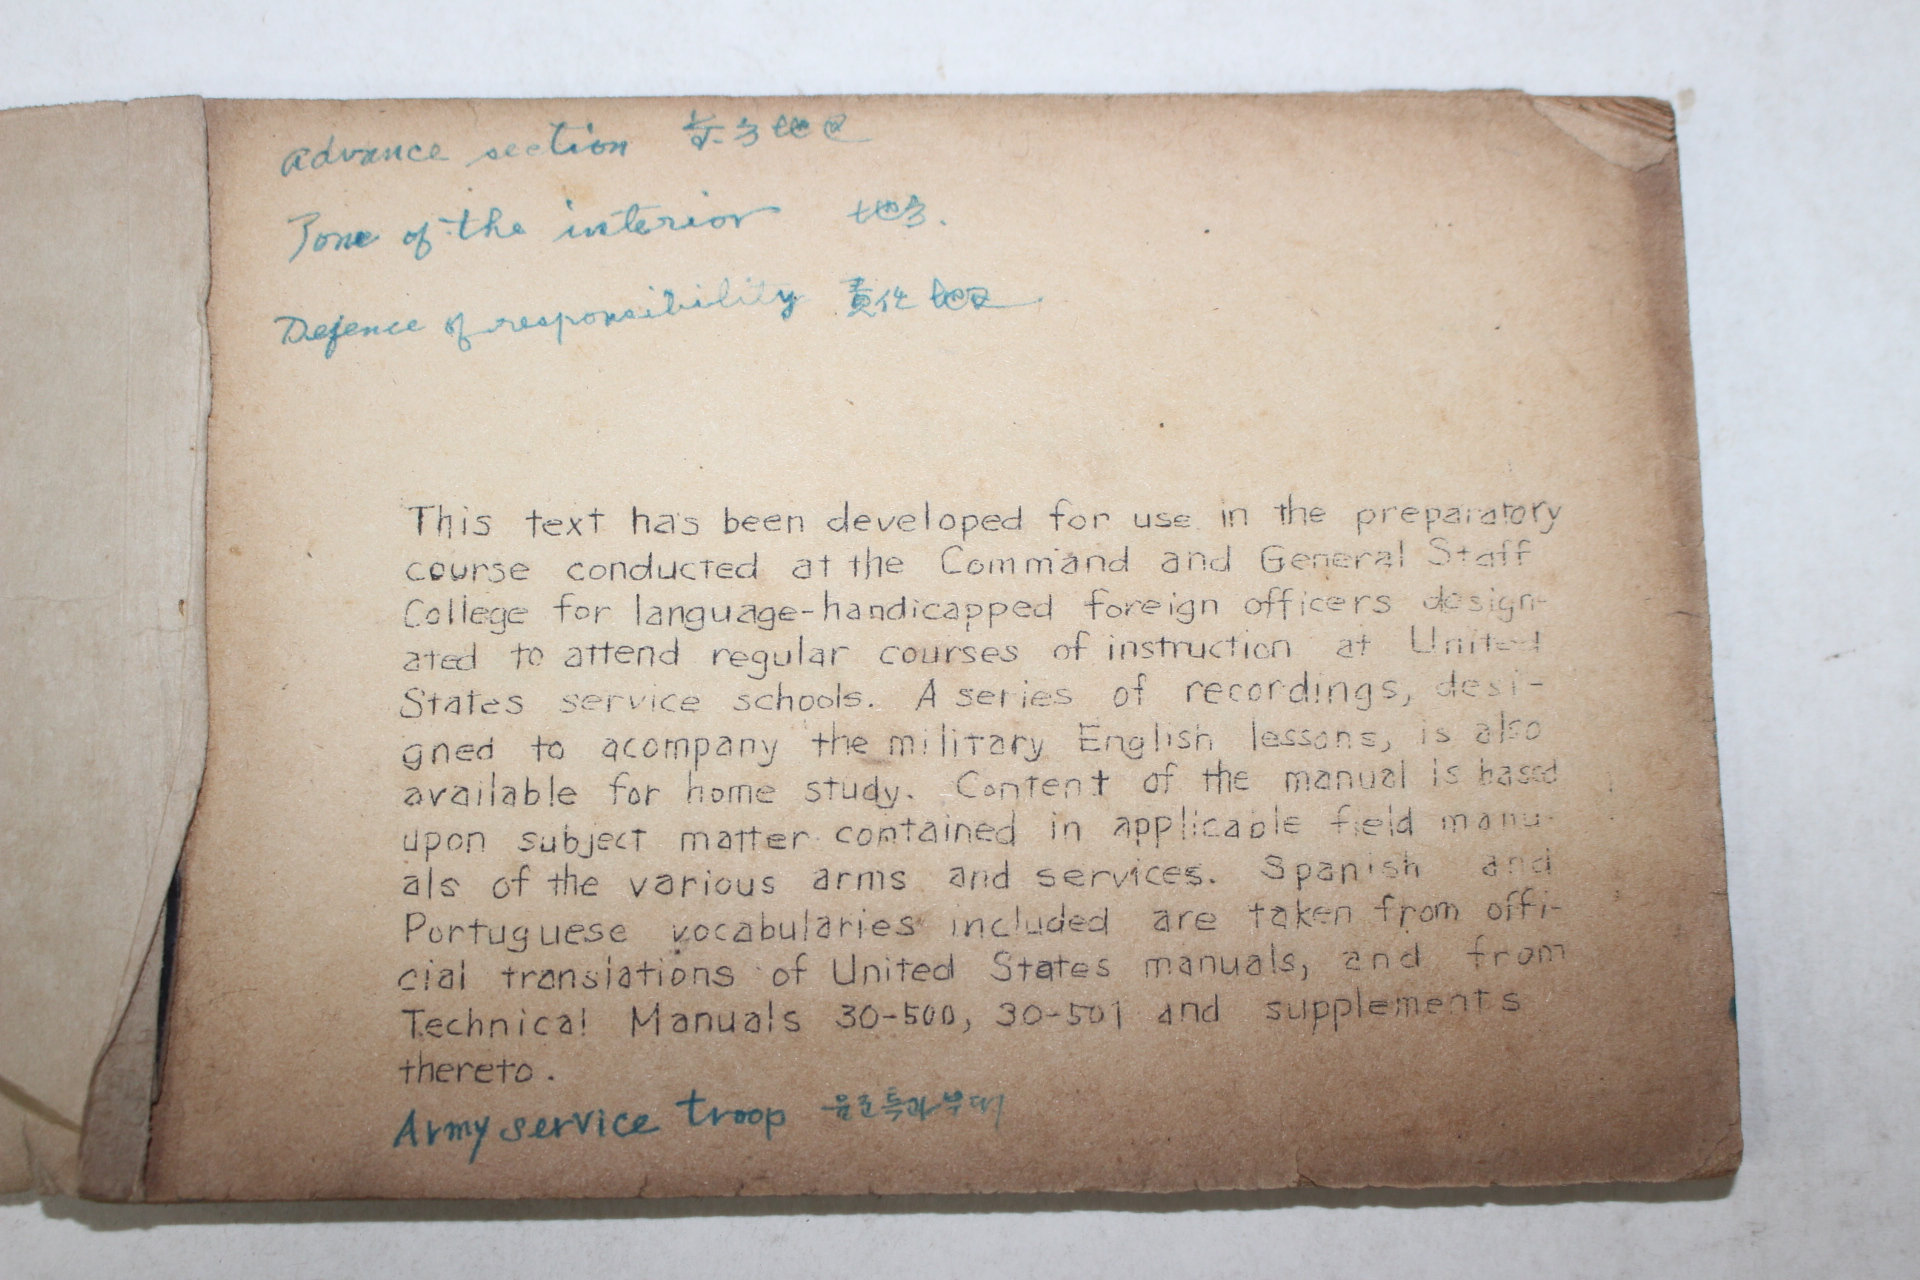 Advance section 地区
Zone of the interior 地方.
Defence of responsibility 責任 地区
This text has been developed for use in the preparatory
course conducted at the Command and General Staff
College for language-handicapped foreign officers design-
ated to attend regular courses of instruction at United
States service schools. A series of recordings, desi-
gned to acompany the military English lessons, is also
available for home study. Content of the manual is based
upon subject matter contained in applicable field manu-
als of the various arms and services. Spanish and
Portuguese vocabularies included are taken from offi-
cial translations of United States manuals, and from
Technical Manuals 30-500, 30-501 and supplements
thereto.
Army service troop 특과부대